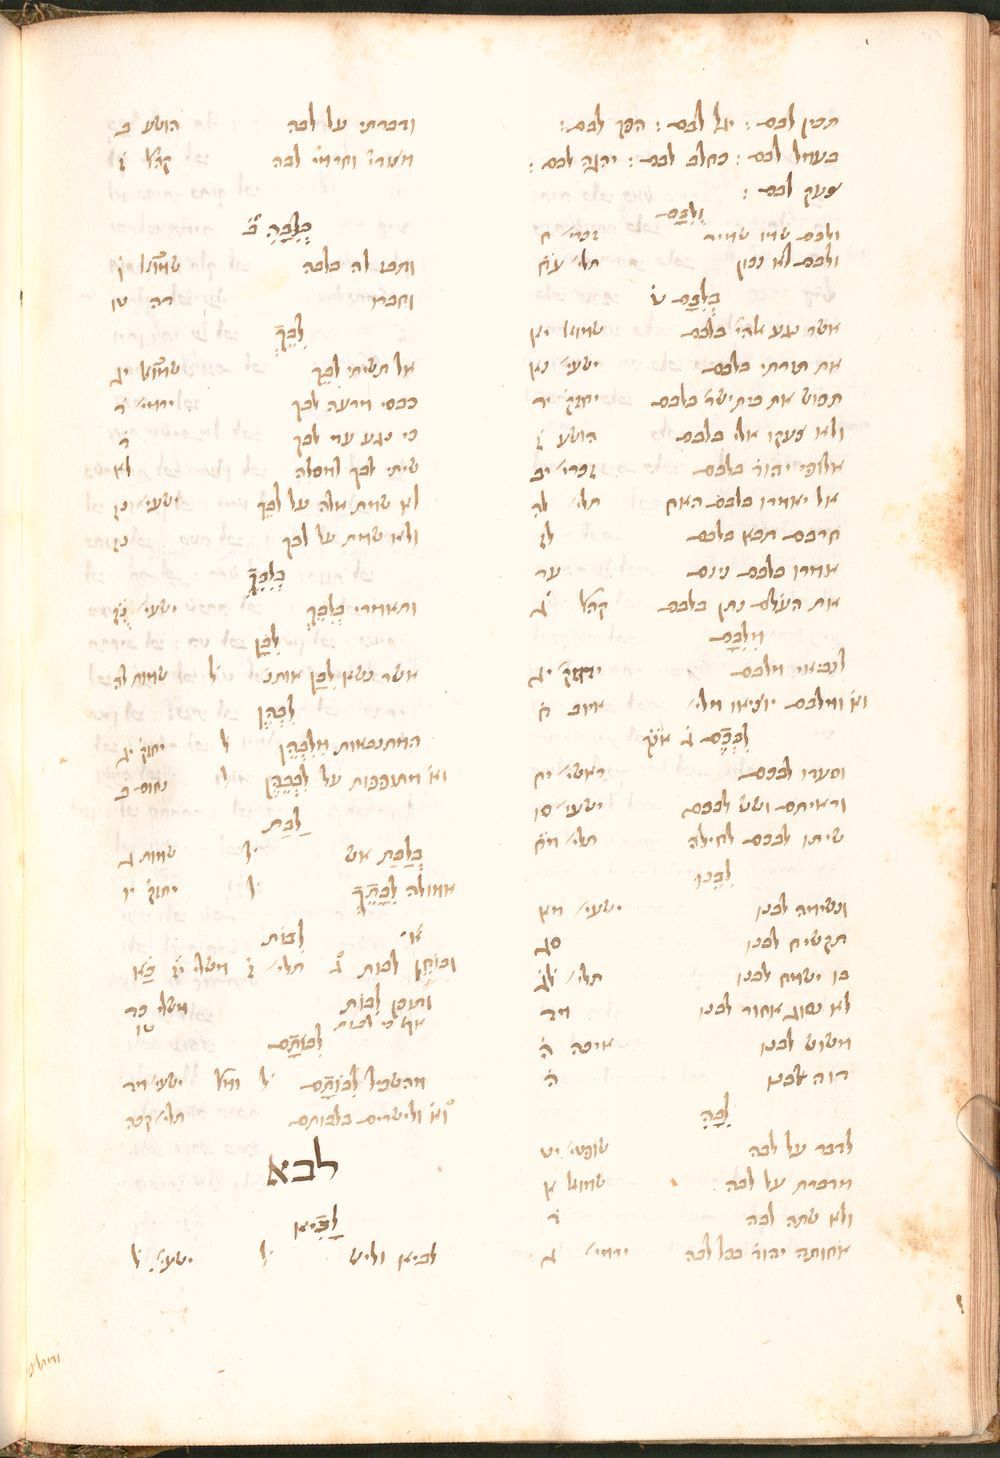 תכין לבם : יגל לבם : הפך לבם :
בעמל לבם : כחלב לבם : יהגה לבם :
צעק לבם :
וְלִבָּם
ולבם שמו שמיר זכרי׳ ז
ולבם לא נכון תלי׳ עח
בְּלִבָּם ט֗
אשר נגע אלהי׳ בלבם שמוא׳ י
את תורתי בלבם ישעי׳ נא
תפוש את בית ישר׳ בלבם יחזק׳ יד
ולא צעקו אלי בלבם הושע ז
אלופי יהוד׳ בלבם זכרי׳ יב
אל יאמרו בלבם האח תלי׳ לה
חרבם תבא בלבם לז
אמרו בלבם נינם עד
את העולם נתן בלבם קהל׳ ג
מִלִּבָּם
לנביאי מלבם יחזק׳ יג
וא֗ ומלבם יוציאו מלי׳ איוב ח
לִבְּכֶם ג֗
וסעדו לבכם בראשי׳ יח
וראיתם ושש לבכם ישעי׳ סו
שיתו לבכם לחילה תלי׳ מח
לִבֵּנוּ
ונשימה לבנו ישעי׳ מא
תקשיח לבנו סג
בו ישמח לבנו תלי׳ לג
לא נסוג אחור לבנו מד
משוש לבנו איכה ה
דוה לבנו ה
לִבָּהּ
לדבר על לבה שופטי׳ יט
מדברת על לבה שמוא׳ א
ולא שתה לבה ד
אחותה יהוד׳ בכל לבה ירמי׳ ג
ודברתי על לבה הושע ב
מצודי׳ וחרמי׳ לבה קהל׳ ז
בְּלִבָּהּ ב֗
ותבז לו בלבה שמוא׳ ו
וחברו דה טו
לִבֵּךְ
אל תשיתי לבך שמוא׳ יג
כבסי מרעה לבך ירמי׳ ד
כי נגע עד לבך ד
שיתי לבך למסלה לא
לא שמת אלה על לבך ישעי׳ מז
ולא שמת על לבך נז
בְּלִבֵּךְ
ותאמרי בלבבך ישעי׳
לִבָּן
אשר נשא לבן אותנ׳ ל֗ שמות לה
לִבְּהֶן
המתנבאות מלבהן ל֗ יחזק׳ יג
וא֗ מתופפות על לבבהן ל֗ נחום ב
לַבַּת
בְּלַבַּת אש ל֗ שמות ג
אמולה לִבָּתֵךְ ל֗ יחזק׳ יו
לִבּוֹת
ובוחן לבות ג֗ תלי׳ ז משלי יז כא
ותוכן לבות משלי כד
אף כי לבות טו
לִבּוֹתָם
מהשכיל לבותם ל֗ ומל׳ ישעי׳ מד
וא֗ ולישרים בלבותם תלי׳ קכה
לבא
לָבִיא
לביא וליש ל֗ ישעי׳ ל